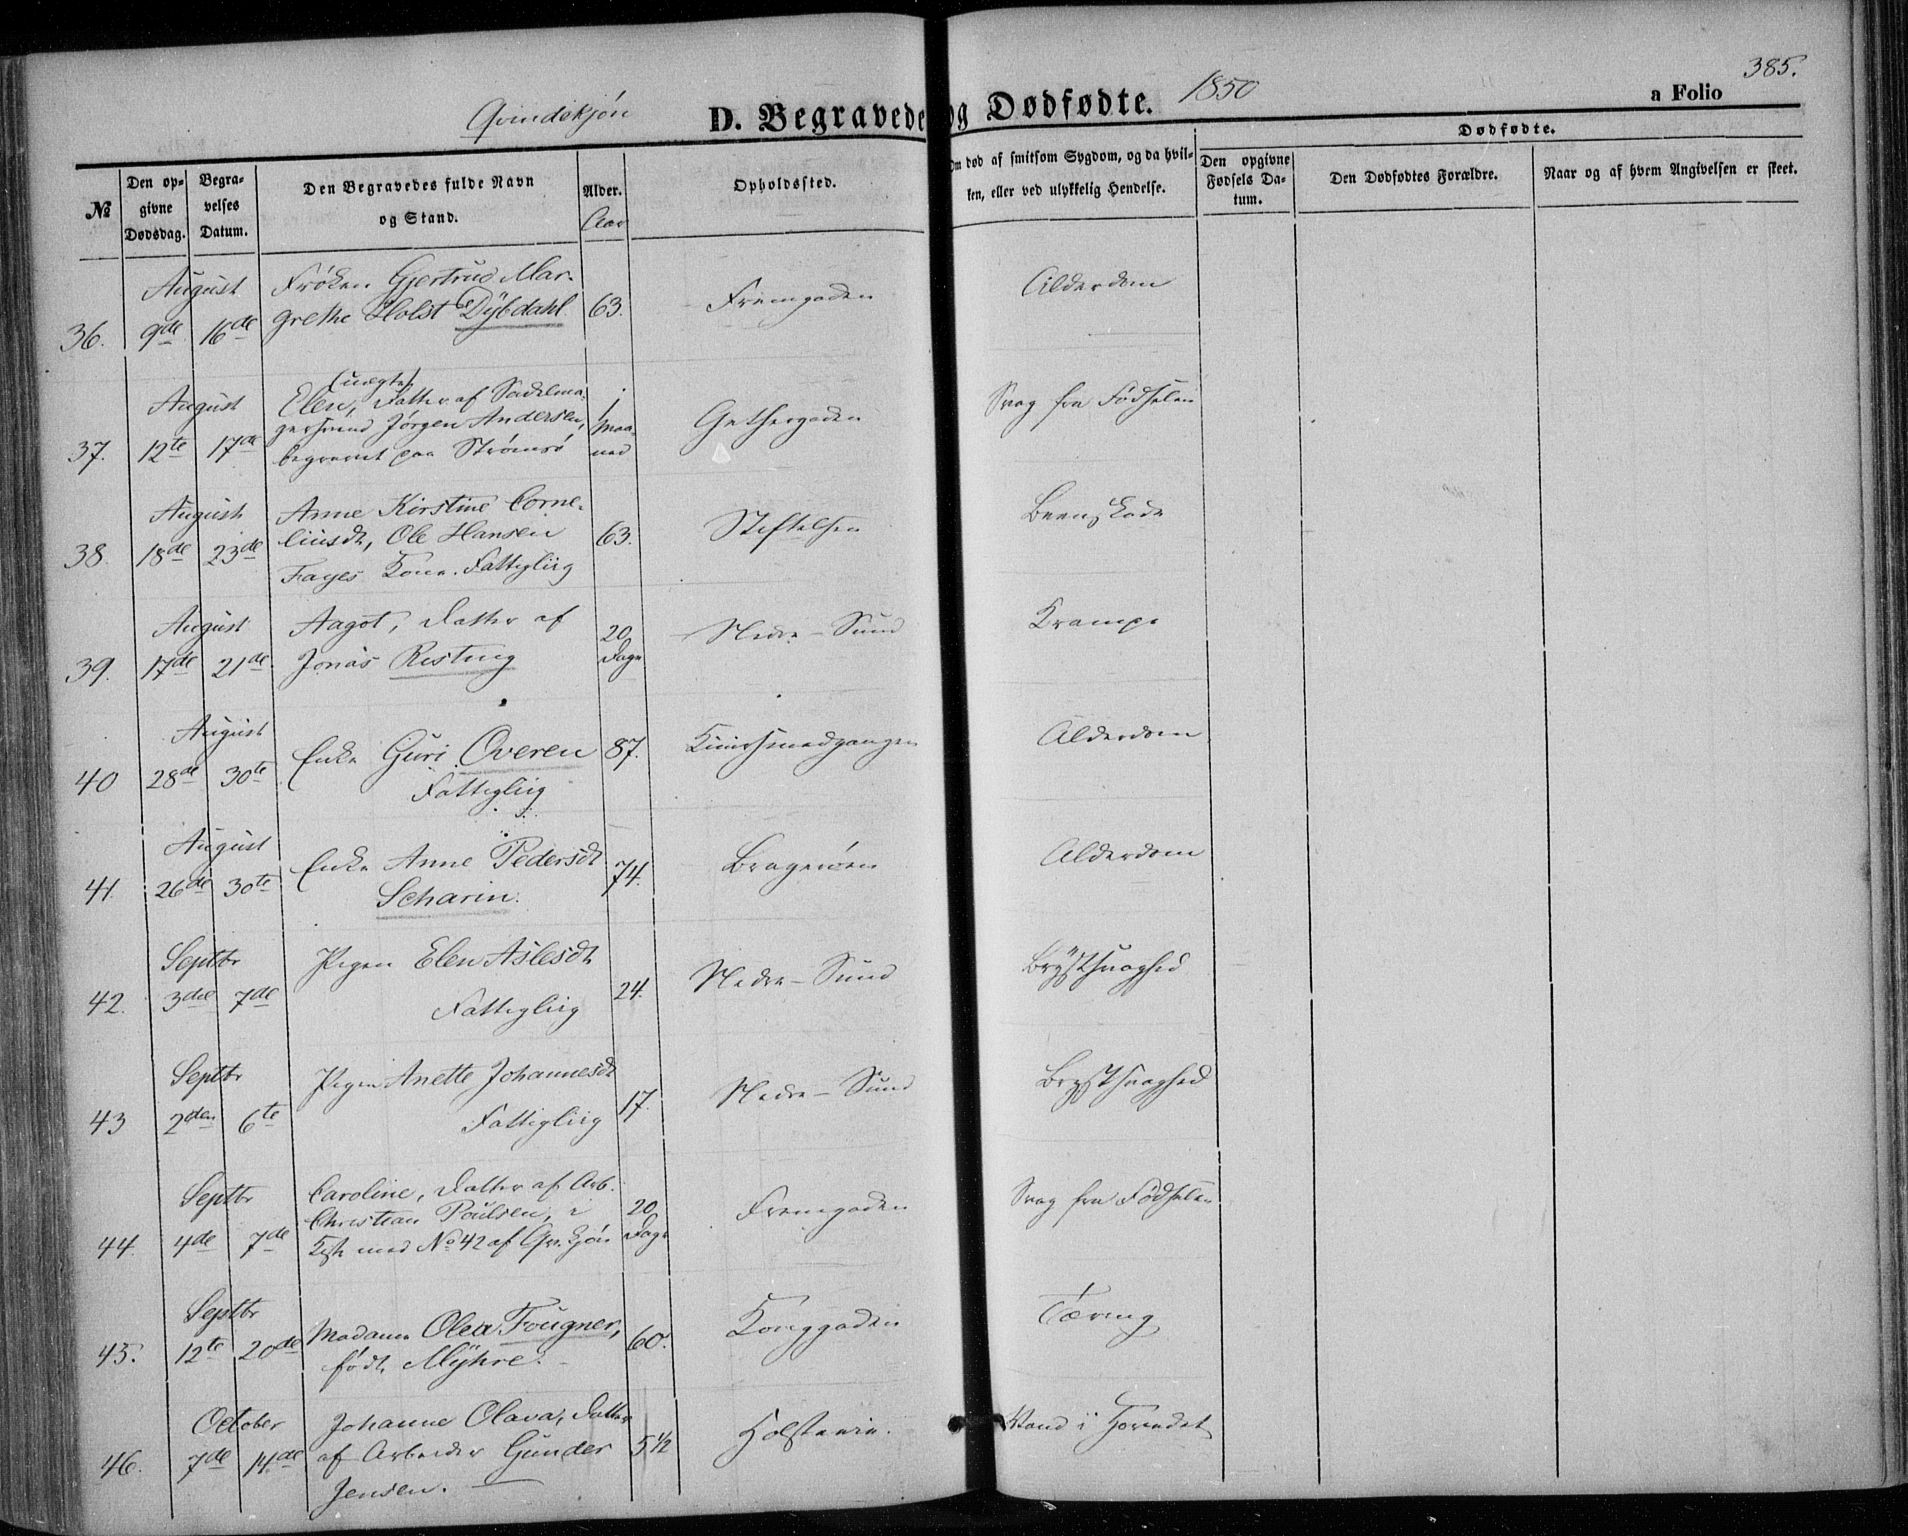 Qvindekjøn D. Begravede og Dødfødte. 1850 a Folio 385.
№ Den opgivne Dødsdag. Begravelses Datum. Den Begravedes fulde Navn og Stand. Alder. Aar Opholdssted. Om død af smitsom Sygdom, og da hvilken, eller ved ulykkelig Hendelse. Dødfødte. Den opgivne Fødsels Datum. Den Dødfødtes Forældre. Naar og af hvem Angivelsen er skeet.
August Frøken Gjertrud Mar-
36. 9de 16de grethe Holst Dÿbdahl 63. Fremgaden Alderdom
(uægte)
August Elen, Datter af Sadelma-
37. 12te 17de gersvend Jørgen Andersen, 1 Maa-
begravet paa Strømsø ned Gethergaden Svag fra Fødselen
August Anne Kirstine Corne-
38. 18de 23de liusdt, Ole Hansen 63. Stiftelsen Beenskade
Fayes Kone. Fattiglig
August Aagot, Datter af 20
39. 17de 21de Jonas Resting Dage Nedre-Sund Krampe
August
40 28de 30te Enke Guri Overen 87. Alderdom
Fattiglig
August Enke Anne Pedersdt
41. 26de 30te Scharin. 74. Bragerøen Alderdom
Septbr Pigen Elen Aslesdt
42. 3die 7de Fattiglig 24. Nedre-Sund Brÿstsvaghed
Septbr Pigen Anette Johannesdt
43 2den 6te Fattiglig 17. Nedre-Sund Brystsvaghed
Septbr Caroline, Datter af Arb.
Christian Poulsen, i 20
44. 4de 7de Kiste med No 42 af Qv. Kjøn Dage Fremgaden Svag fra Fødselen
Septbr Madame Olea Fougner,
45. 12te 20de født Mÿhre. 60. Konggaden Tæring
October Johanne Olava, Datter
46. 7de 14de af Arbeider Gunder 5 1/2 Holstenin. Vand i Hovedet
Jensen.